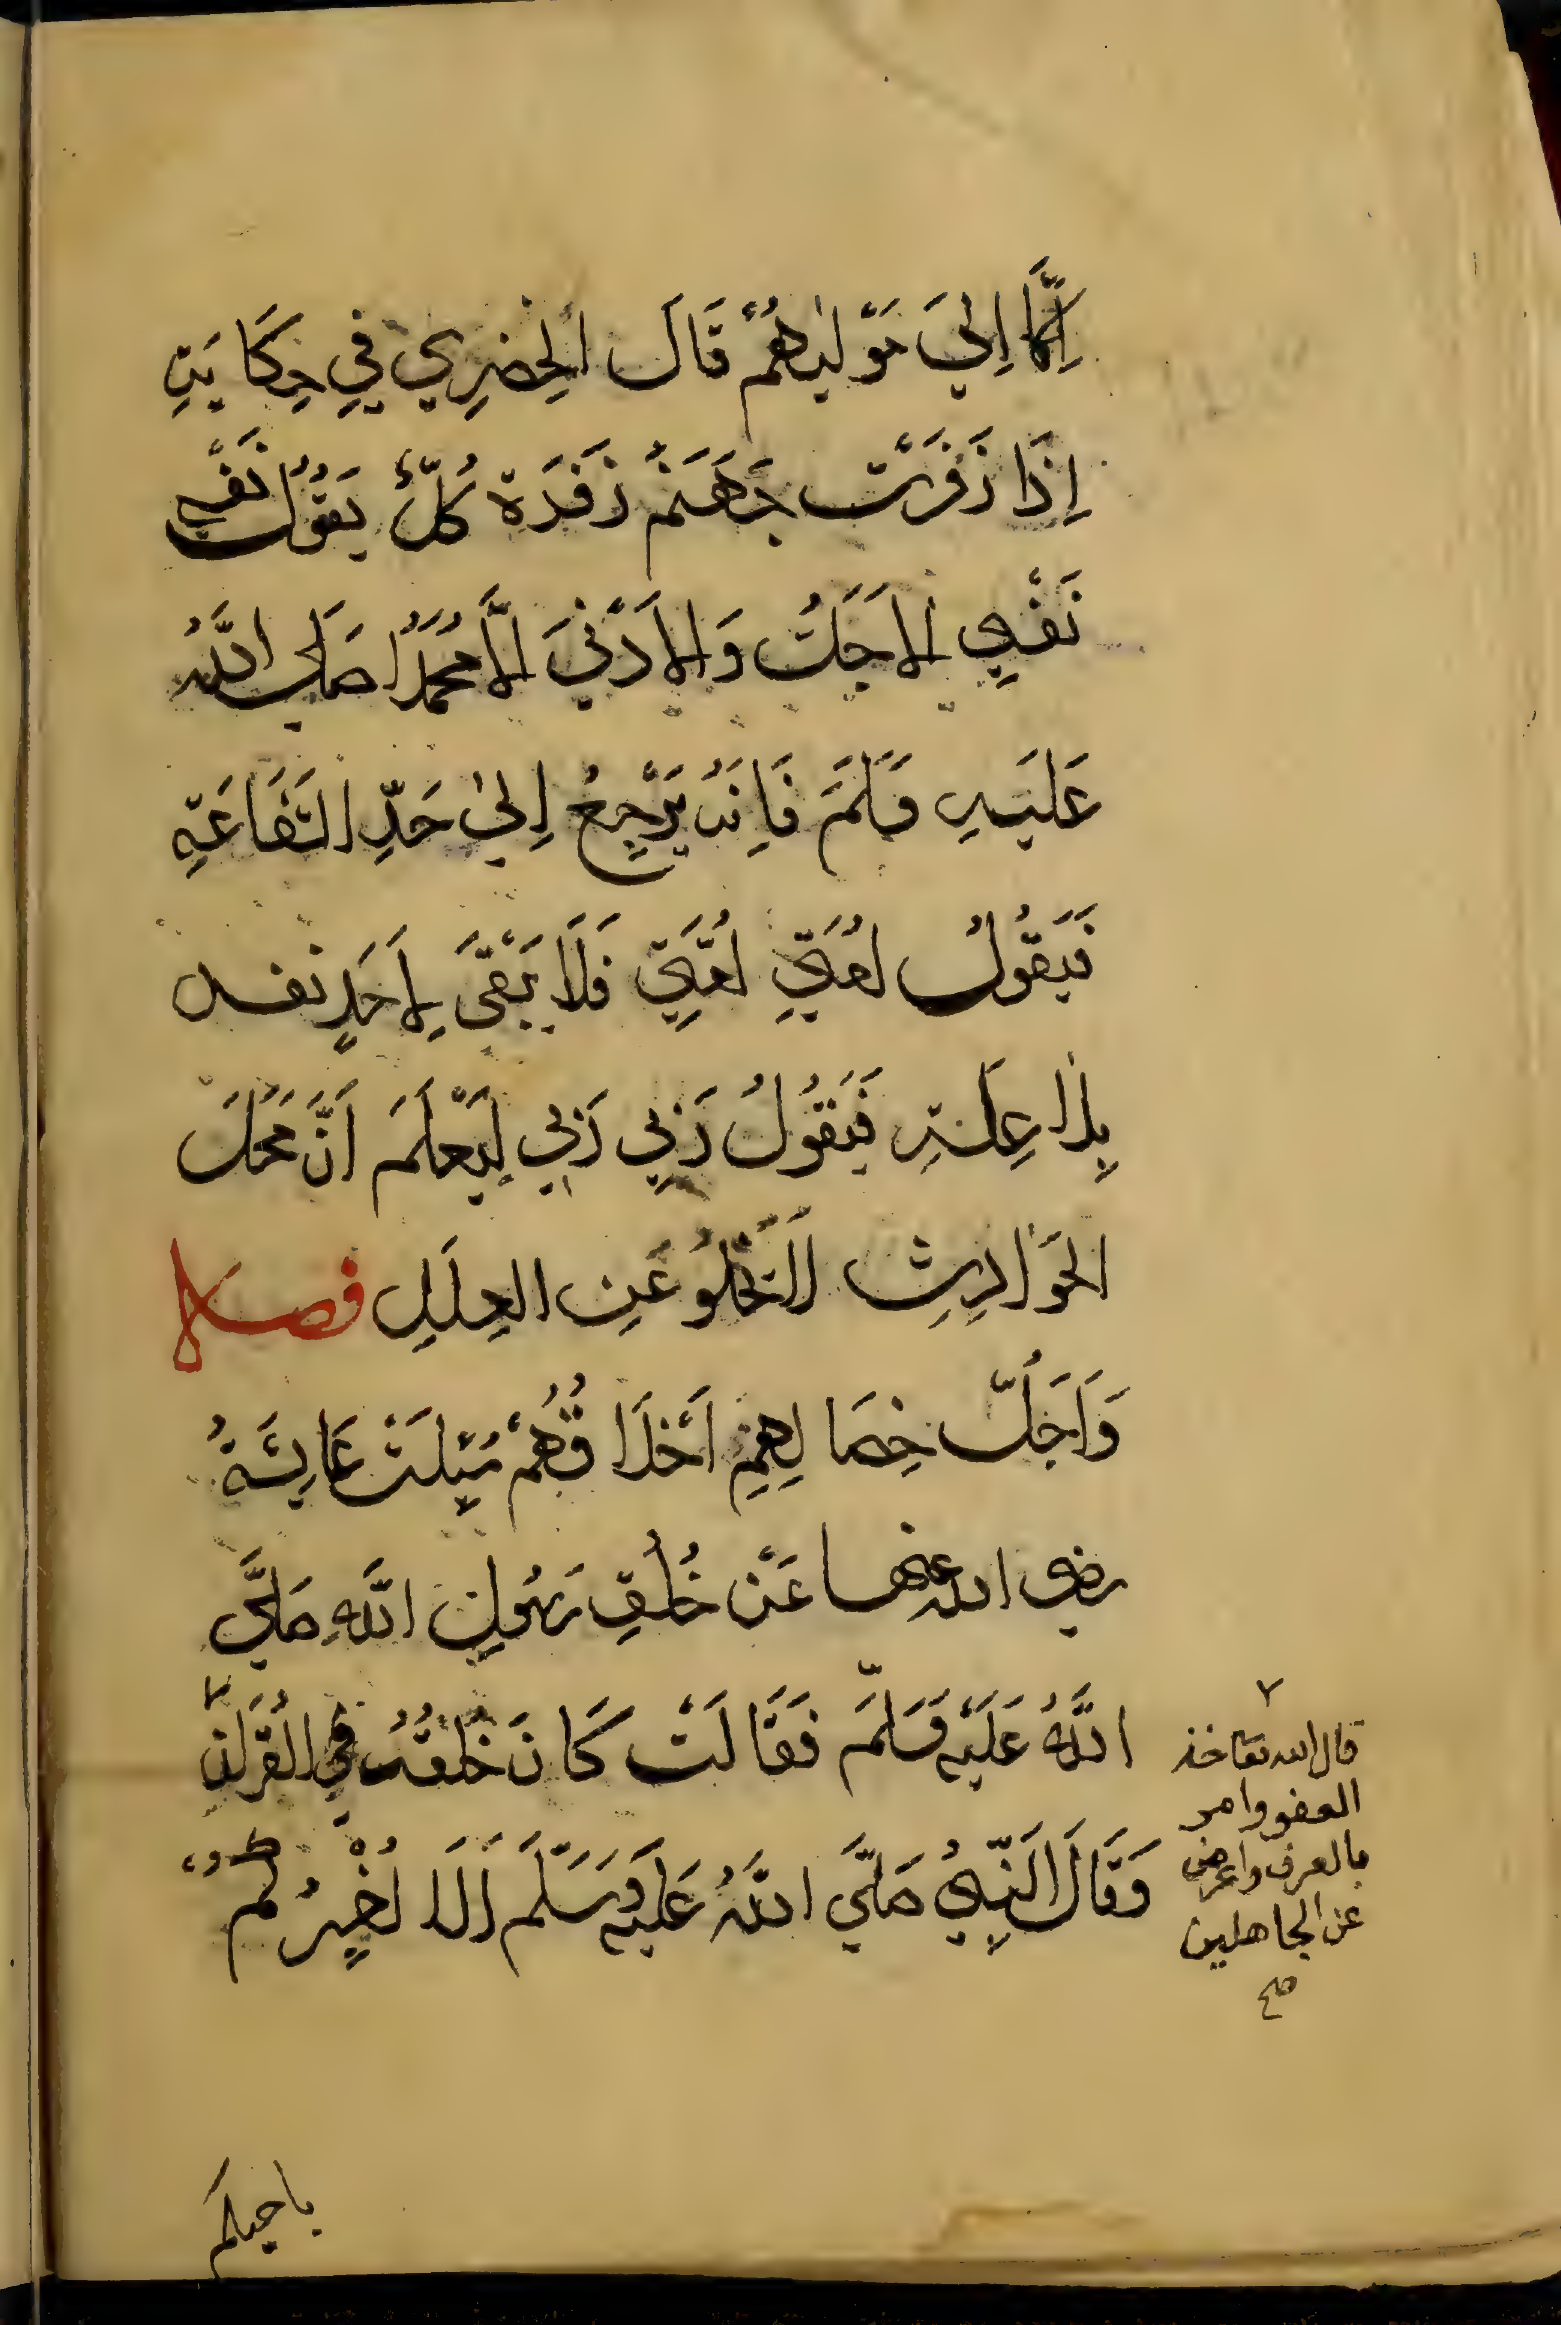 اِنَّمَا اِلىَ مَوْلیٰهُمْ قَالَ الحِضرِي فِي حِكَايَتِهِ
اِذَا زَفَرَتْ جَهَنَّمُ زَفْرَة كُلٌّ يَقُولُ نَفْسِي
نَفْسِي الاَجَلُّ وَالاَدْنىَ اِلَّا مُحَمَّدًا صَلى اللَّهُ
عَلَيهِ وَسَلَّمَ فَاِنَهُ يَرْجِعُ اِلىٰ حَدِّ الشَّفَاعَةِ
فَيَقُولُ اُمَّتِي اُمَّتِي فَلَا يَبْقىَ لِاَحَدٍ نفس
بِلاَ عِلَّةٍ فَيَقُولُ رَبِي رَبِي لِيَعْلَمَ اَنَّ مَحَلَّ
الحَوَادِثِ لَا تَخْلُوُ عَنِ العِلَلِ فصل
وَاَجَلُّ خِصَالِهِمِ اَخْلَاقُهُمْ سُئِلَتْ عَايِشَةُ
رضي الله عنها عَنْ خُلُقِ رَسُولِ اللَّهِ صَلىَّ
اللَّهُ عَلَيْهِ وَسَلَّمَ فَقَالَتْ كَانَ خُلُقُهُ فِي الْقُرآنِ
وَقَالَ النَّبِيُّ صَلىَّ اللَّهُ عَلَيْهِ وَسَلَّمَ اَلَا اُخْبِرُكُمْ
قال الله تعا خذ
العفو وامر
بالعرف واعرض
عن الجاهلين
صح
باحبكم